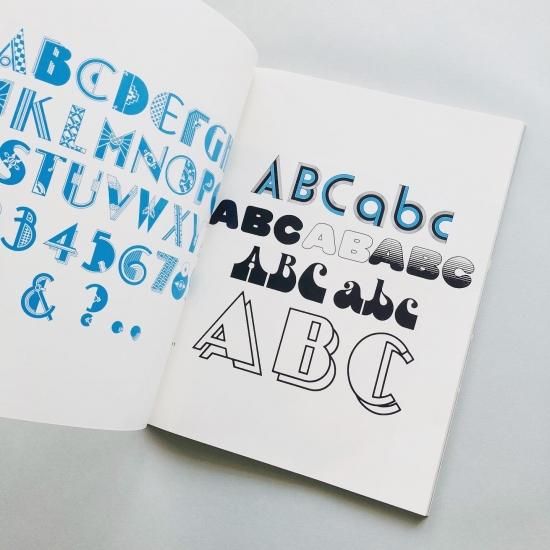 ABCDEFGH
JKLMNOP
STUVWXY
345678
& ? . .
ABCabc
ABC ABABC
ABC abc
ABC